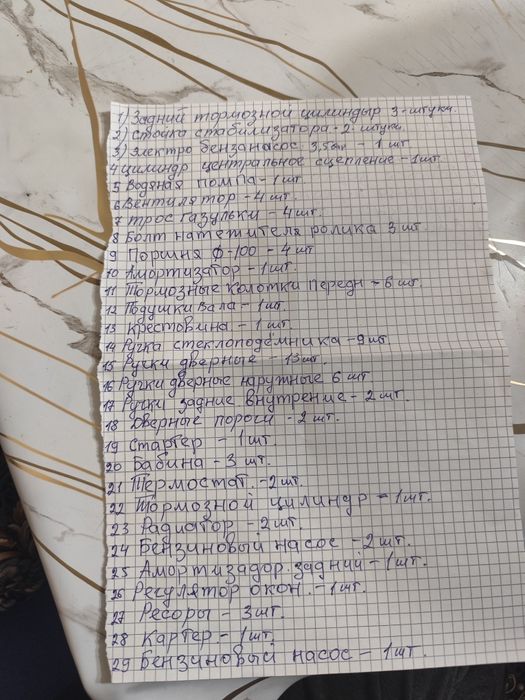 1) Задний тормозной цилиндыр 3-штуки
2) Стойка стабилизатора - 2 штуки
3) Электро бензанасос 3,5 - 1 шт
4 цилиндр центральное сцепление - 1шт
5 Водяная помпа - 1 шт
6 Вентилятор - 4 шт.
7 трос газульки - 4 шт.
8 Болт натежителя ролика 3 шт
9 Поршня ф-100 - 4 шт
10 Амортизатор - 1 шт.
11 Тормозные колотки передн - 6 шт.
12 Подушки вала - 1 шт.
13 крестовина - 1 шт.
14 Ручка стеклоподёмника - 9 шт
15 Ручки дверные - 13 шт.
16 Ручки дверные наружные 6 шт
17 Ручки задние внутрение - 2 шт.
18 Дверные пороги - 2 шт.
19 Стартер - 1 шт
20 Бабина - 3 шт.
21 Термостат. - 2 шт.
22 Тормозной цилиндр - 1 шт.
23 Радиатор - 2 шт.
24 Бензиновый насос - 2 шт.
25 Амортизадор. задний - 1 шт.
26 Регулятор окон. - 1 шт.
27 Ресоры - 3 шт.
28 Картер - 1 шт.
29 Бензиновый насос - 1 шт.